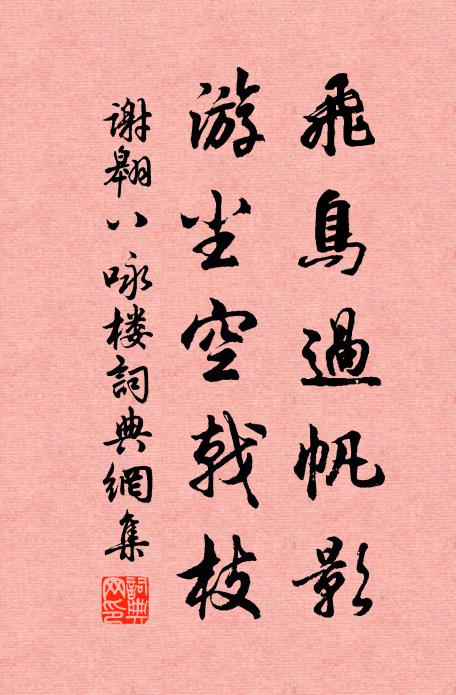 飛鳥過帆影
游尘空戟枝
謝翱八咏楼詞典網集
詞典网印